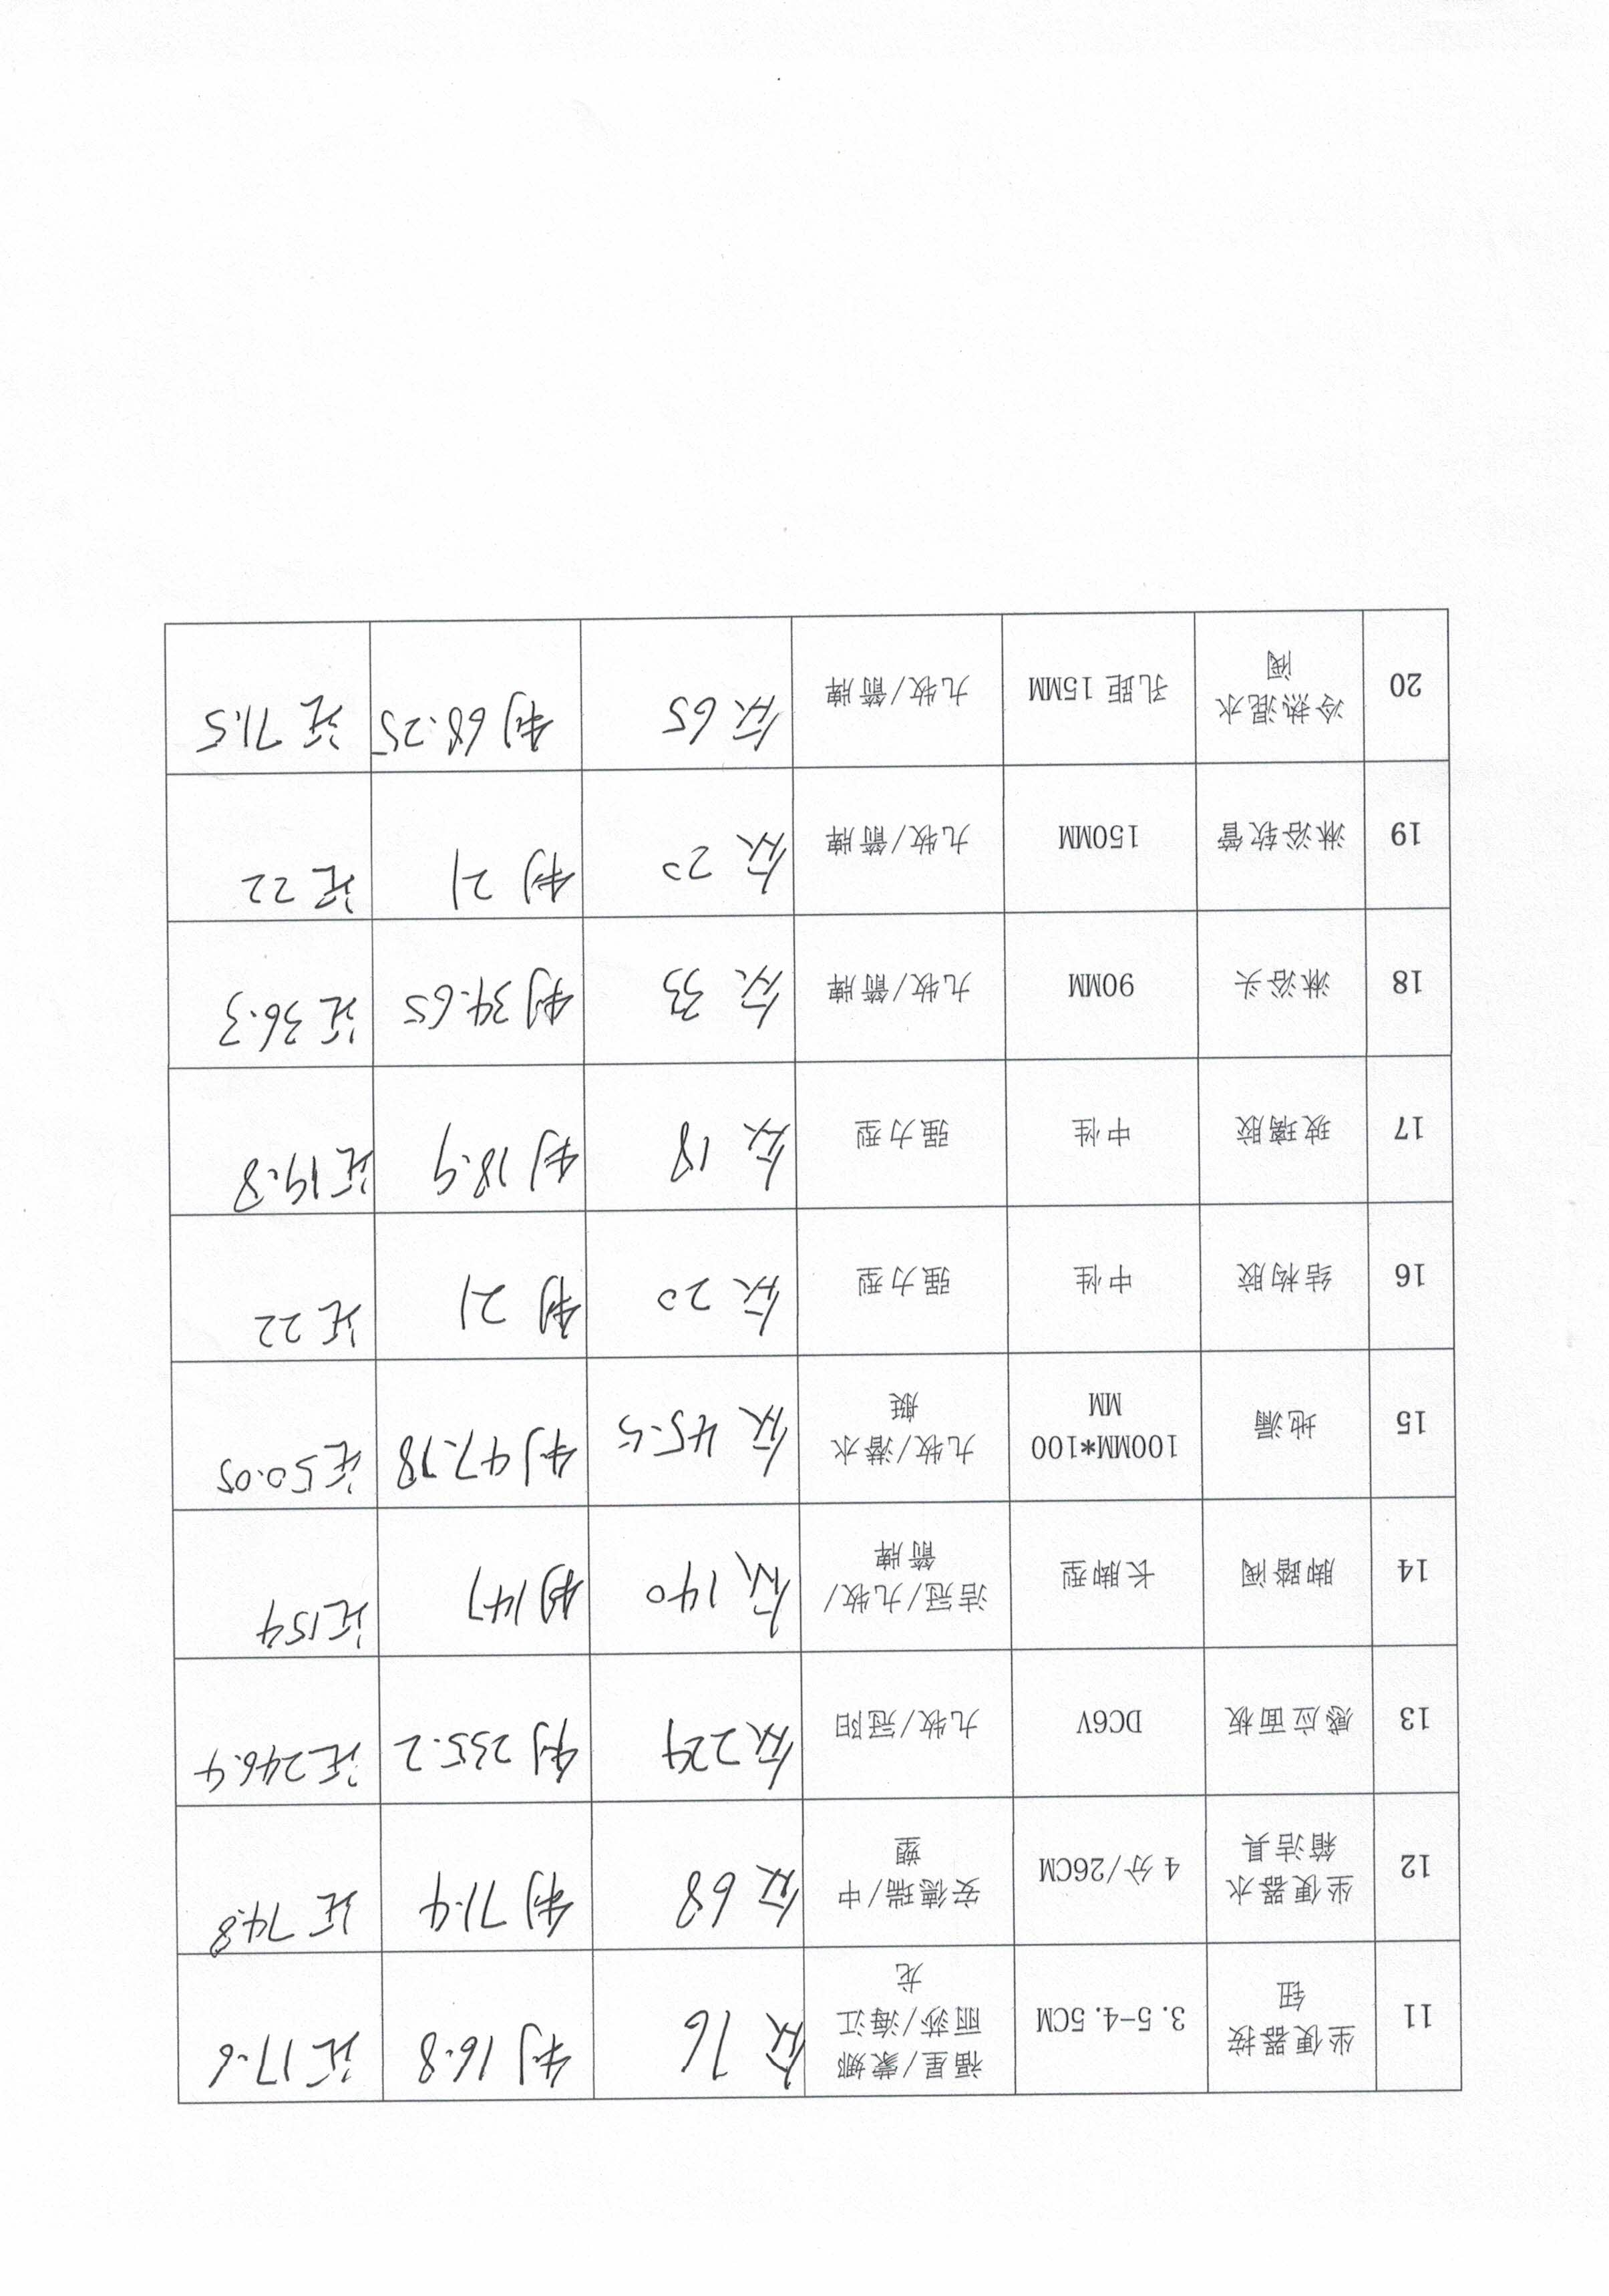 11
坐便器按
钮
3.5-4.5CM
福星/蒙娜
丽莎/海江
龙
16
16.8
17.6
12
坐便器水
箱洁具
4分/26CM
安德瑞/中
塑
68
71.4
74.8
13
感应面板
DC6V
九牧/冠阳
224
235.2
246.4
14
脚踏阀
长脚型
洁冠/九牧/
箭牌
140
147
154
15
地漏
100MM*100
MM
九牧/潜水
艇
45.5
47.78
50.05
16
结构胶
中性
强力型
20
21
22
17
玻璃胶
中性
强力型
18
18.9
19.8
18
淋浴头
90MM
九牧/箭牌
33
34.65
36.3
19
淋浴软管
150MM
九牧/箭牌
20
21
22
20
冷热混水
阀
孔距 15MM
九牧/箭牌
65
68.25
71.5